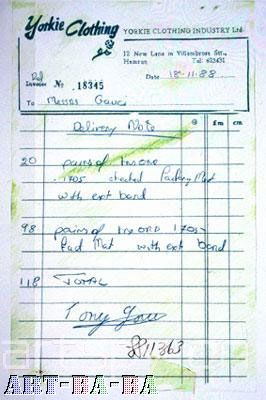 Yorkie Clothing
YORKIE CLOTHING INDUSTRY Ltd.
12 New Lane in Villambrosa Str.,
Hamrun Tel: 625451
Del
Invoice No 18345
Date 18-11-88
To Messrs Gauci
Delivery Note
@ £m cm
20 pairs of
1705 checked Mat
with ext band
98 pairs of 1705
Mat with ext band
118 TOTAL
Tony
11363
ART-BA-BA